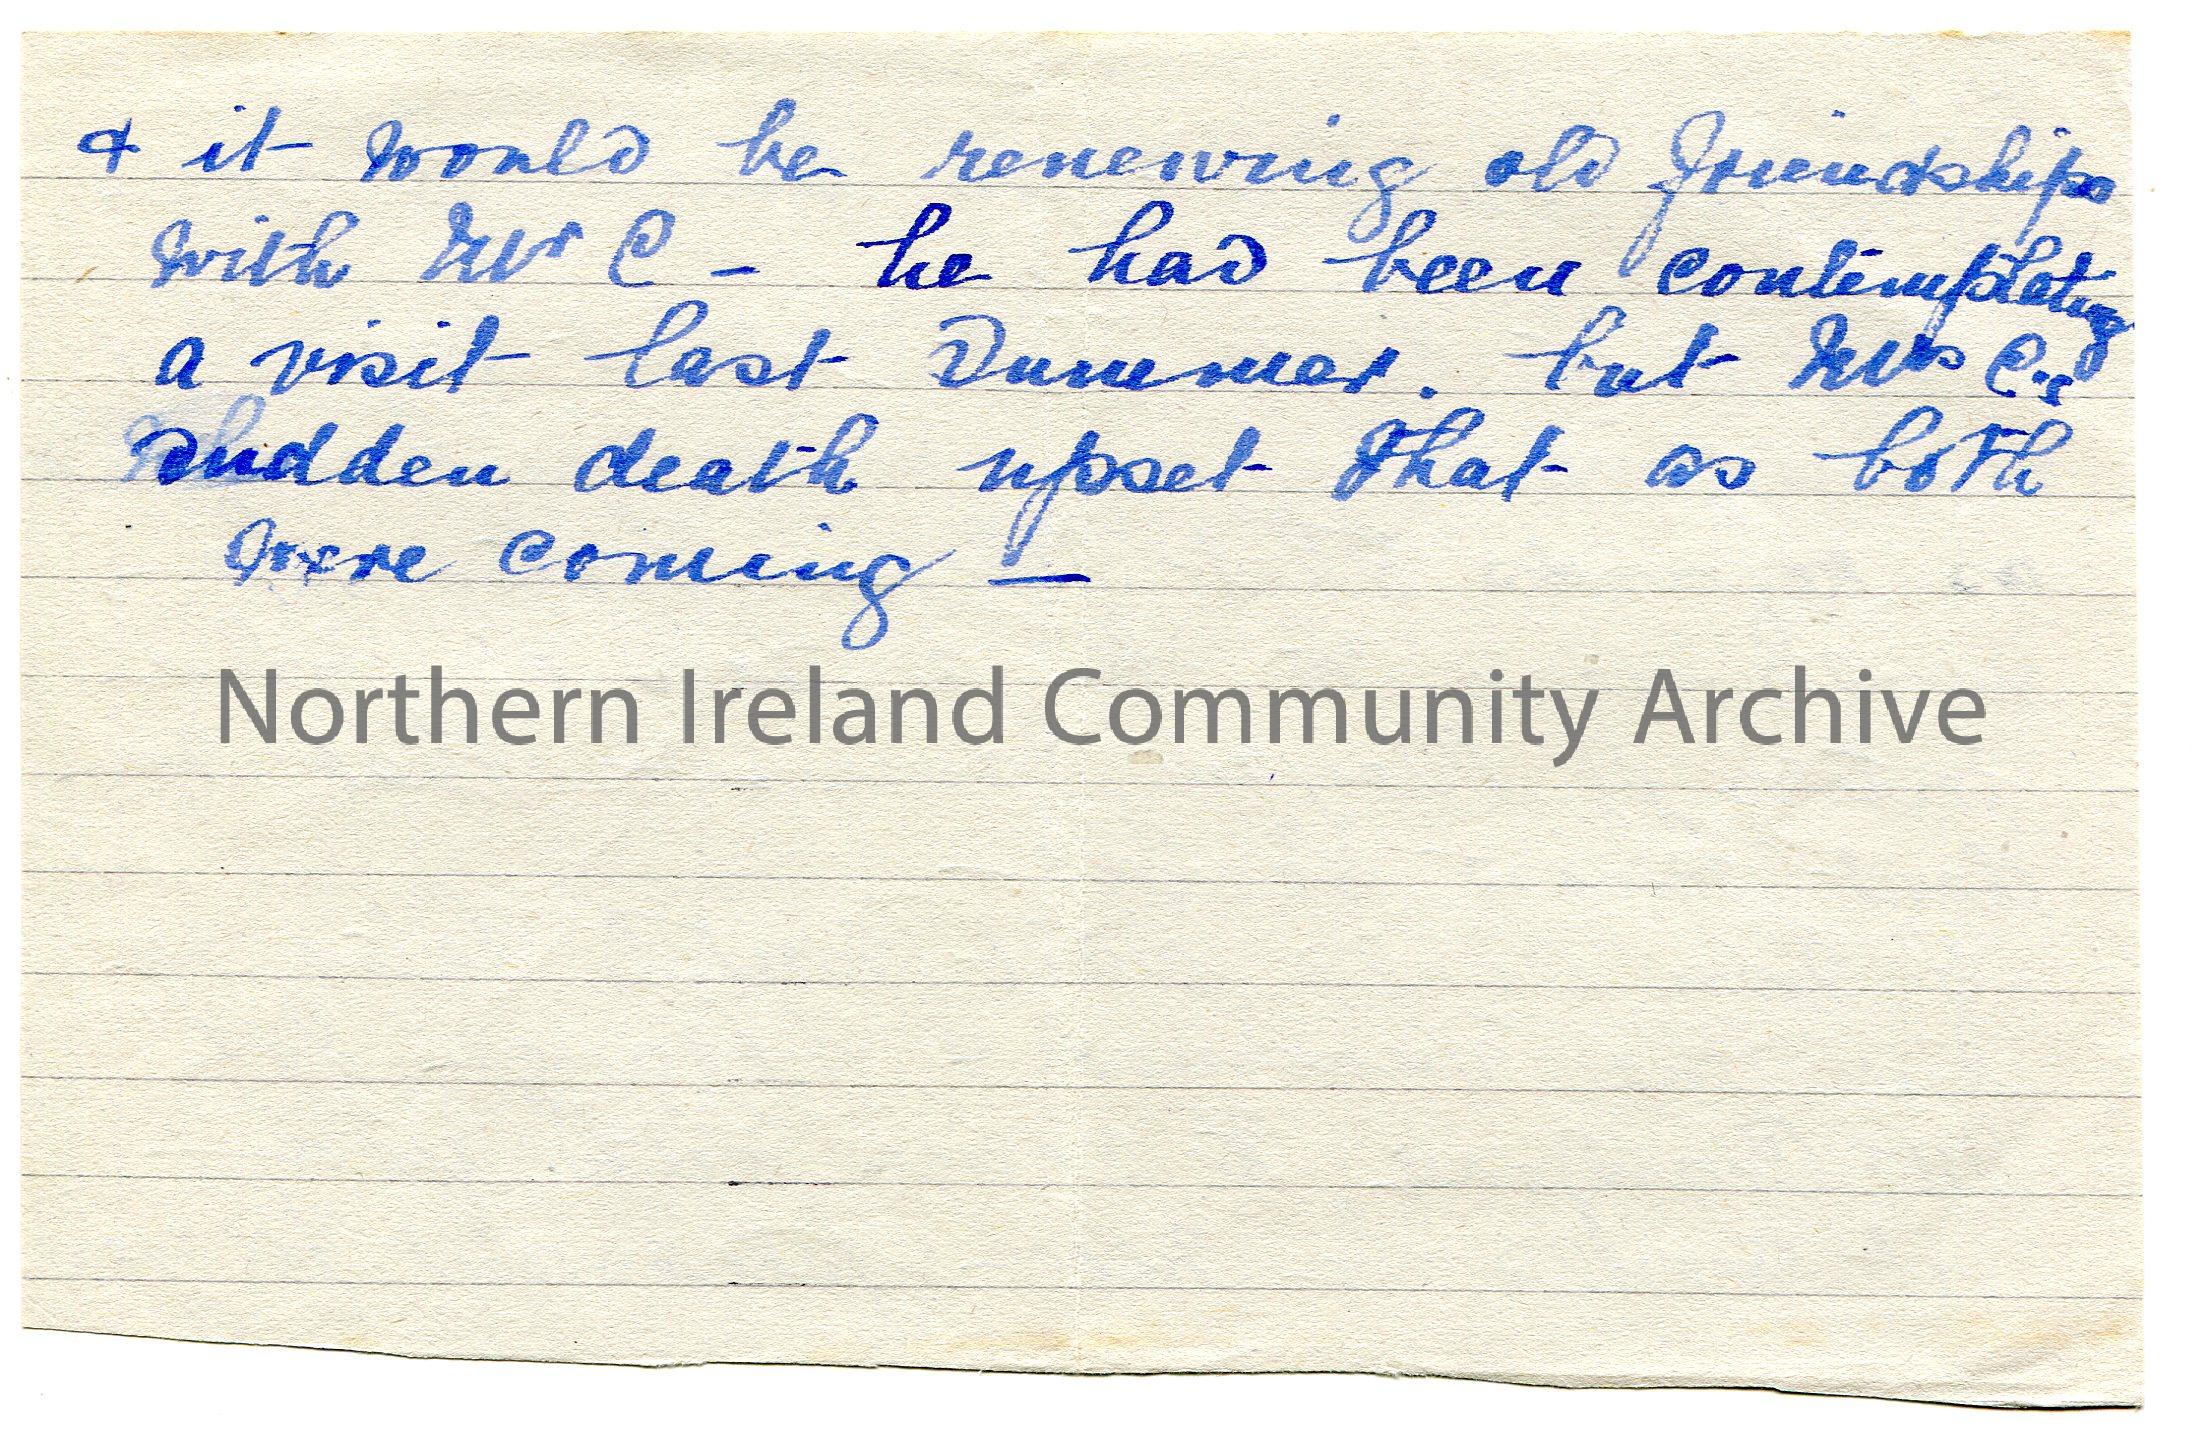 & it would be renewing old friendships
with Mr C - he had been contemplating
a visit last Summer. but Mrs C's
sudden death upset that as both
were coming —
Northern Ireland Community Archive